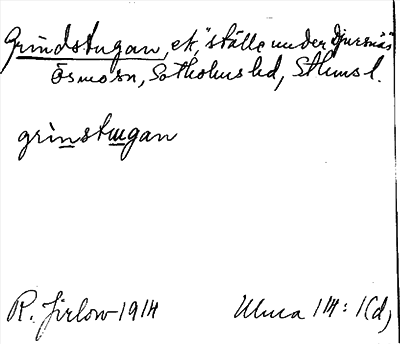 Grindstugan, ek, "ställe under Djursnäs"
Ösmo sn, Sotholms hd, Sthms l.
grinstugan
R. Jirlow 1914 Ulma 114: 1(d)